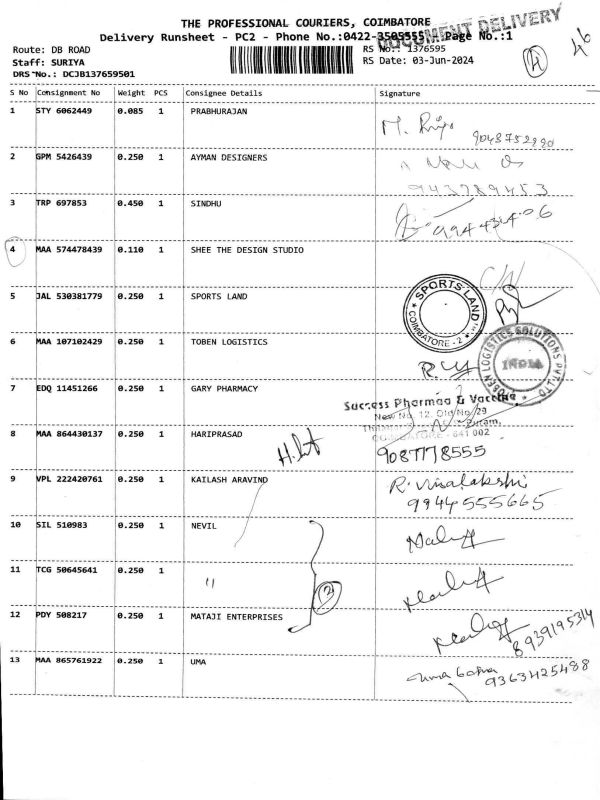 THE PROFESSIONAL COURIERS, COIMBATORE
DOCUMENT DELIVERY
Delivery Runsheet - PC2 - Phone No.:0422-3505555 Page No.:1
Route: DB ROAD RS No.: 1376595
Staff: SURIYA RS Date: 03-Jun-2024
DRS No.: DCJB137659501
S No Consignment No Weight PCS Consignee Details Signature
1 STY 6062449 0.085 1 PRABHURAJAN
9048752990
2 GPM 5426439 0.250 1 AYMAN DESIGNERS
943789453
3 TRP 697853 0.450 1 SINDHU
4 MAA 574478439 0.110 1 SHEE THE DESIGN STUDIO
5 JAL 530381779 0.250 1 SPORTS LAND
SPORTS LAND
COIMBATORE - 2
6 MAA 107102429 0.250 1 TOBEN LOGISTICS
TOBEN LOGISTICS SOLUTIONS PVT LTD
INDIA
7 EDQ 11451266 0.250 1 GARY PHARMACY
Success Pharmaa & Vaccine
New No. 12, Old No. 29
COIMBATORE - 641 002
8 MAA 864430137 0.250 1 HARIPRASAD
9087778555
9 VPL 222420761 0.250 1 KAILASH ARAVIND
R. Visalakshi
9944555665
10 SIL 510983 0.250 1 NEVIL
11 TCG 50645641 0.250 1 "
3
12 PDY 508217 0.250 1 MATAJI ENTERPRISES
8939195314
13 MAA 865761922 0.250 1 UMA
9363425488